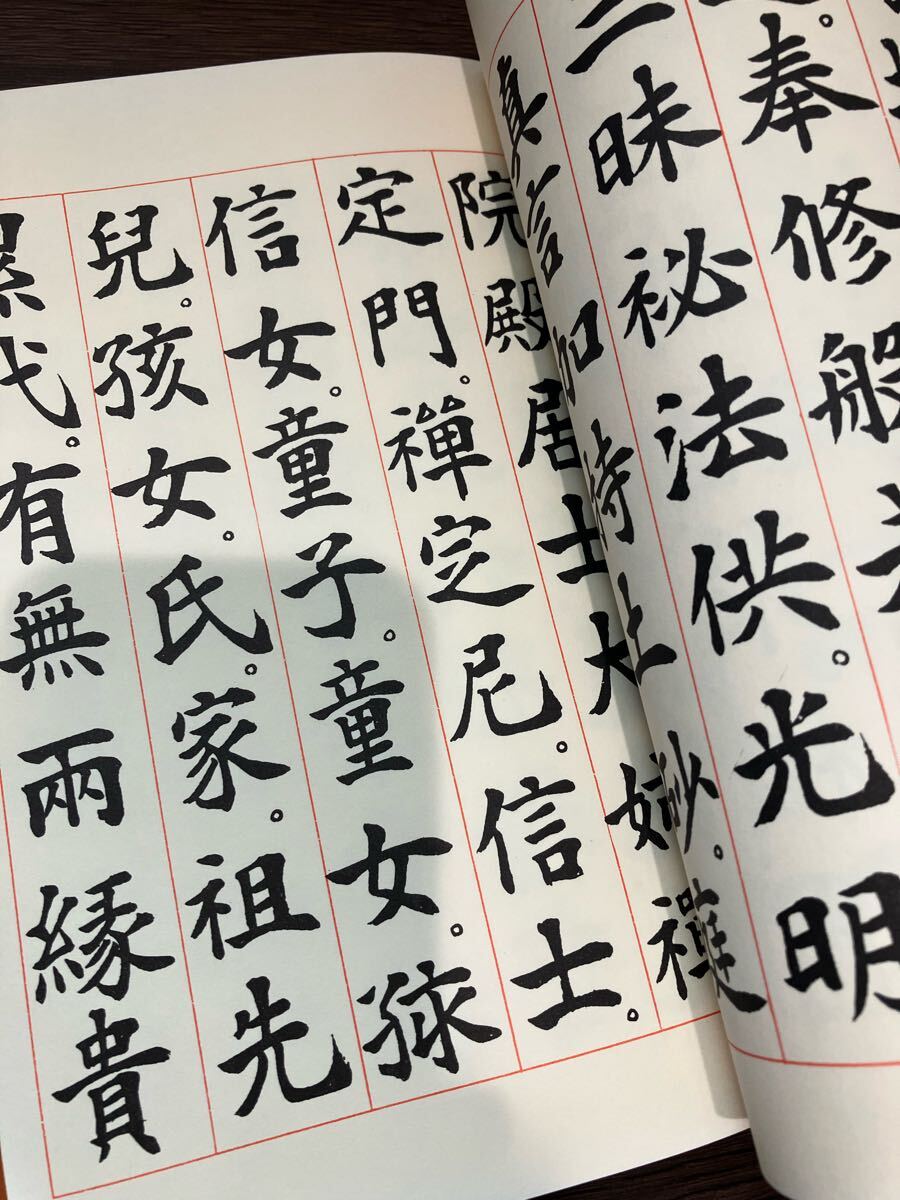 奉修般
三昧秘法供。光明
真言加持土
院殿居士大姉禪
定門。禪定尼。信士。
信女。童子。童女。孩
兒。孩女。氏。家。祖先
累代。有無兩縁貴